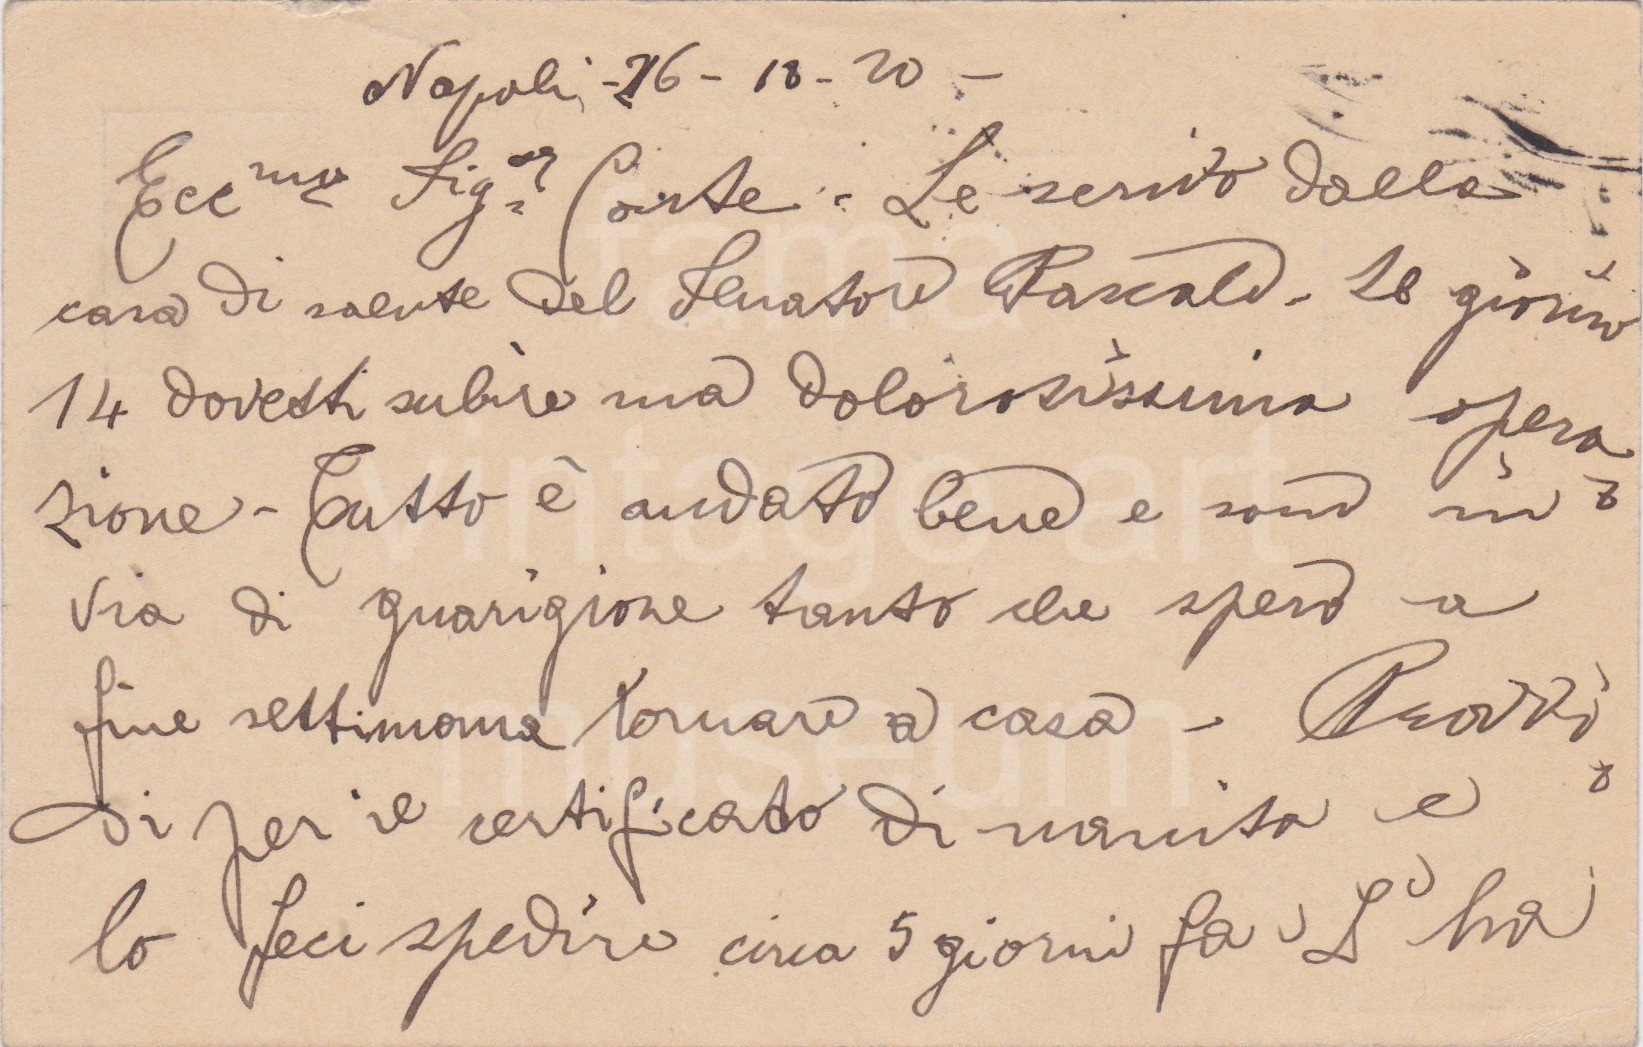 Napoli, -26 - 18 - 20 -
Ecc.mo Sig.r Conte - Le scrivo dalla
casa di salute del Senatore Pascale - Il giorno
14 dovetti subire una dolorosissima opera
zione - Tutto è andato bene e sono in
via di guarigione tanto che spero a
fine settimana tornare a casa -
di per il certificato di nascita e
lo feci spedire circa 5 giorni fa L'ha
fama
vintage art
museum